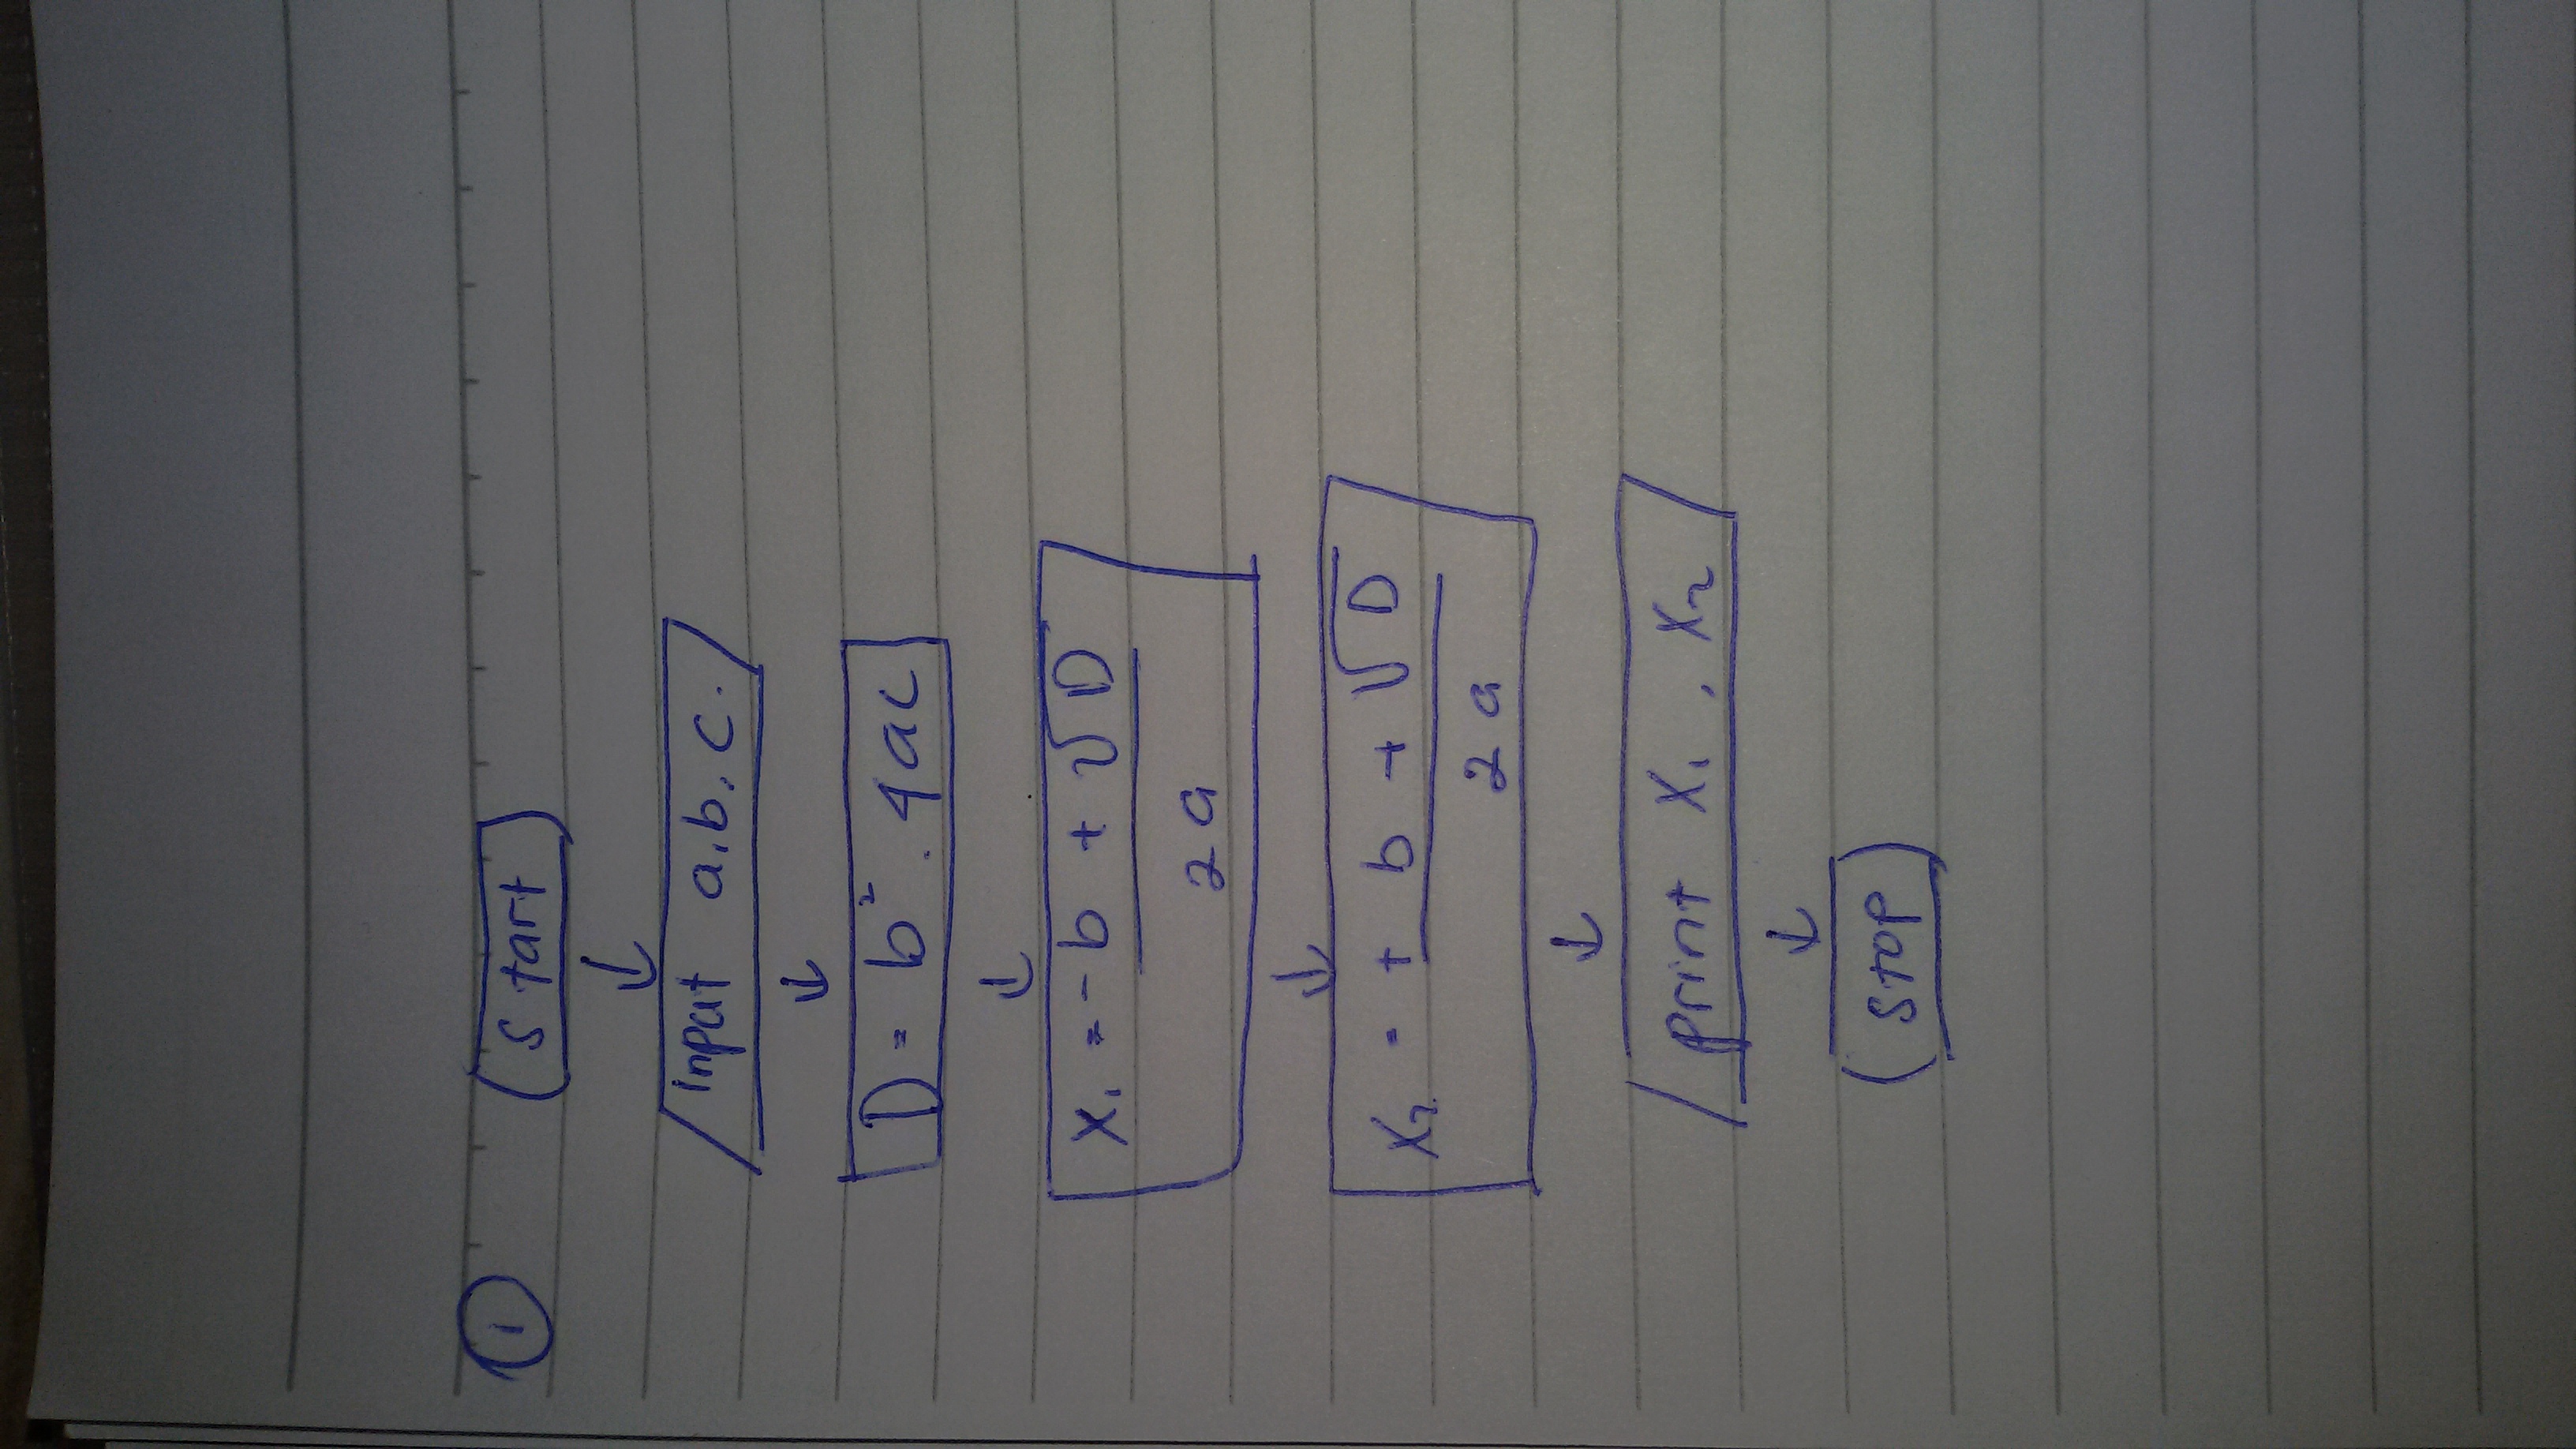 1
Start
Input a, b, c.
D = b² . 4ac
X₁ = -b + √D
2a
X₂ = + b + √D
2a
print X₁, X₂
STOP